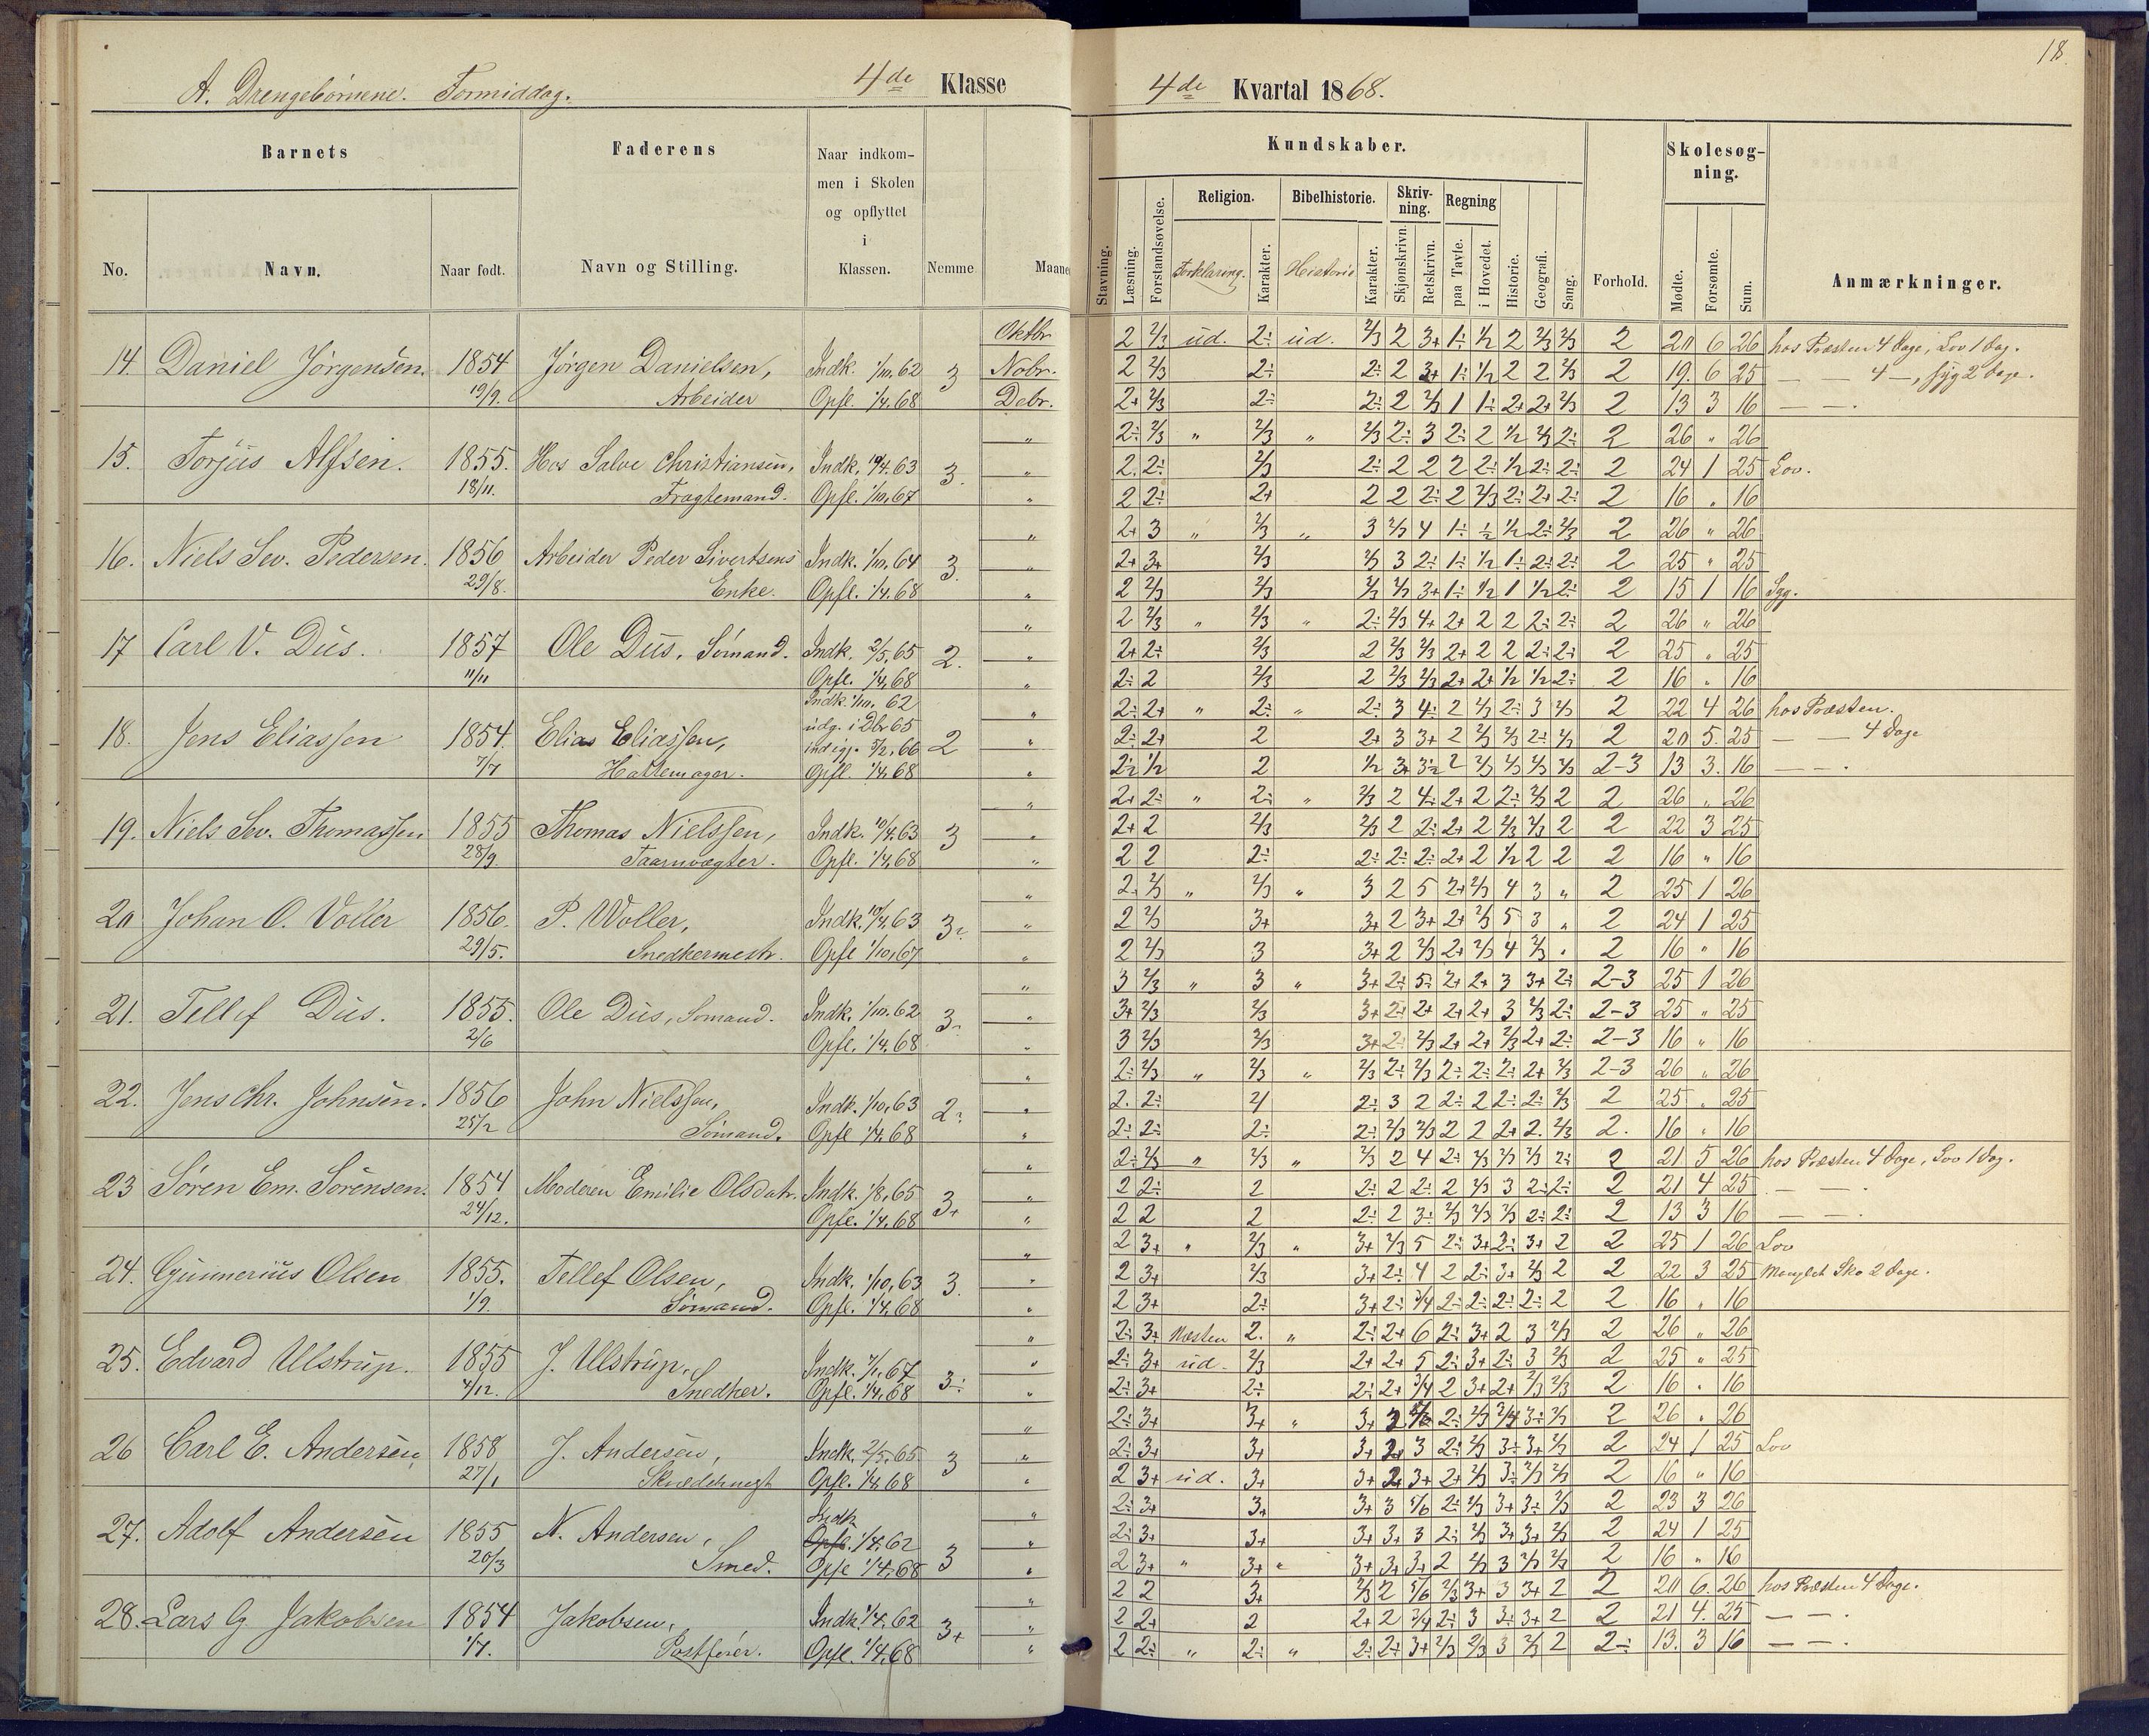 A. Drengebørnene. Formiddag. 4de Klasse
Barnets
Faderens
Naar indkom-
men i Skolen
og opflyttet
i
Klassen.
No. Navn. Naar født. Navn og Stilling. Nemme
14. Daniel Jørgensen. 1854 Jørgen Danielsen, Indk. 1/10.62 3 Oktbr.
Nobr.
19/9. Arbeider Opfl. 1/4.68 Debr.
15. Torjus Alfsen. 1855. Hos Salve Christiansen, Indk. 19/4.63 3.
18/11. Fragtemand. Opfl. 1/10.67
16. Niels Sev. Pedersen. 1856 Arbeider Peder Sivertsens Indk. 1/10.64 3.
29/8. Enke. Opfl. 1/4.68
17 Carl V. Düs. 1857 Ole Düs, Sømand. Indk. 2/5.65 2.
11/11 Opfl. 1/4.68
Indk. 1/10. 62
udg. i Dbr 65
18. Jens Eliassen 1854. Elias Eliassen, indigj. 5/2.66 2
7/7 Hattemager. Opfl. 1/4.68
19. Niels Sev. Thomassen 1855 Thomas Nielssen, Indk. 19/4.63 3
28/9. Taarnvægter. Opfl. 1/4.68
20 Johan O. Voller 1856. P. Woller, Indk. 19/4.63
29/5. Snedkermestr. Opfl 1/10.67
21. Tellef Düs. 1855. Ole Düs, Sømand. Indk. 1/10.62
2/6 Opfl. 1/4.68
22. Jens Chr. Johnsen. 1856 John Nielssen, Indk. 1/10.63
25/2 Sømand. Opfl 1/4.68
23 Søren Em. Sørensen. 1854 Moderen Emilie Olsdatr. Indk. 1/8.65 3+
24/12. Opfl. 1/4.68
24. Gunnerius Olsen 1855. Tellef Olsen, Indk. 1/10.63 3.
1/9. Sømand. Opfl. 1/4.68
25. Edvard Ulstrup. 1855 J. Ulstrup, Indk. 7/1.67
4/12. Snedker. Opfl. 1/4.68 3÷
26 Carl E. Andersen 1858 J. Andersen, Indk. 2/5.65 3
27/1 Opfl. 1/4.68
Indk
27. Adolf Andersen 1855 N. Andersen, Opfl. 1/4.62 3
20/3 Smed. Opfl 1/4.68
28. Lars G. Jakobsen 1854 Jakobsen, Indk. 1/4.62 3+
1/7. Postfører. Opfl. 1/4.68
18
4de Kvartal 1868.
Kundskaber.
Skolesøg-
ning.
Religion. Bibelhistorie. Skriv-
ning. Regning
Stavning. Læsning. Forstandsøvelse. Forklaring. Karakter. Historie Karakter. Skjønskrivn. Retskrivn. paa Tavle. i Hovedet. Historie. Geografi. Sang. Forhold. Mødte. Forsømte. Sum. Anmærkninger.
2 2/3 ud. 2÷ ud. 2/3 2 3+ 1÷ 1/2 2 2/3 2/3 2 20 6 26 hos Præsten 4 Dage, Lov 1 Dag.
2 2/3 2÷ 2÷ 2 3+ 1÷ 1/2 2 2 2/3 2 19. 6 25 — — 4 —, syg 2 Dage.
2+ 2/3 2÷ 2÷ 2 2/3 1 1÷ 2+ 2+ 2/3 2 13 3 16 — — .
2÷ 2/3 „ 2/3 „ 2/3 2÷ 3 2÷ 2 1/2 2/3 2÷ 2 26 „ 26
2. 2÷ 2/3 2÷ 2 2 2 2÷ 1/2 2÷ 2÷ 2 24 1 25 Lov.
2 2÷ 2+ 2 2 2÷ 2 2/3 2÷ 2+ 2÷ 2 16 „ 16
2+ 3 „ 2/3 „ 3 2/3 4 1÷ 1/2 2÷ 2/3 2 26 „ 26
2+ 3+ 2/3 2/3 3 2÷ 1÷ 1/2 1÷ 2÷ 2÷ 2 25 „ 25
2 2/3 2/3 3+ 1÷ 1/2 1 1/2 2÷ 2 15 1 16 Syg.
2 2/3 „ 2/3 „ 2÷ 2/3 4+ 2+ 2 2 2÷ 2÷ 2 26 „ 26
2+ 2÷ 2/3 2 2/3 2/3 2+ 2 2 2÷ 2÷ 2 25 „ 25
2÷ 2 2/3 2 2/3 2/3 2+ 2+ 1/2 1/2 2÷ 2 16 „ 16
2÷ 2+ „ 2÷ „ 2÷ 3 4÷ 2 2/3 2÷ 3 2/3 2 22 4 26 hos Præsten.
2÷ 2+ 2 2+ 3 3+ 2 2/3 2/3 2÷ 2/3 2 20 5. 25 — — 4 Dage
1/2 2 1/2 3+ 2 2/3 2/3 2/3 2/3 2-3 13 3. 16 — — .
2+ 2÷ „ 2÷ „ 2/3 2 4÷ 2+ 2 2÷ 2/3 2 2 26 „ 26
2+ 2 2/3 2/3 2 2÷ 2+ 2 2/3 2/3 2 2 22 3 25
2 2 2÷ 2÷ 2÷ 2÷ 2+ 2 1/2 2 2 2 16 „ 16
2. 2/3 „ 2/3 „ 3 2 5 2+ 2/3 4 3 „ 2 25 1 26
2 2/3 3+ 3+ 2 3+ 2+ 2/3 5 3 „ 2 24 1 25
2 2/3 3 3+ 2 2/3 2+ 2/3 4 2/3 „ 2 16 „ 16
3 2/3 „ 3 „ 3+ 2÷ 5÷ 2+ 2+ 3 3+ 2÷ 2-3 25 1 26
3+ 2/3 2/3 3+ 2÷ 2+ 2+ 2+ 3 2/3 2÷ 2-3 25 „ 25
3 2/3 2/3 3+ 2÷ 2/3 2+ 2+ 2/3 2+ 2÷ 2-3 16 „ 16
2÷ 2/3 „ 2/3 „ 2/3 2÷ 2/3 2÷ 2÷ 2÷ 2+ 2/3 2-3 26 „ 26
2. 2÷ 2÷ 3 2 2÷ 2 2÷ 2÷ 2/3 2 25 „ 25
2÷ 2÷ 2÷ 2÷ 2/3 2/3 2 2 2+ 2. 2/3 2. 16 „ 16
2÷ 2/3 „ 2/3 „ 2/3 2 4 2÷ 2/3 2/3 2/3 2÷ 2 21 5 26 hos Præsten 4 Dage, Lov 1 Dag.
2 2÷ 2 2÷ 2 2÷ 2 2/3 3 2÷ 2÷ 2 21 4 25 — — .
2 2 2 2÷ 2 3÷ 2/3 2/3 2/3 2÷ 2÷ 2 13 3 16 — — .
2 3+ „ 2/3 „ 3+ 2/3 5 2÷ 3+ 2÷ 3+ 2 2 25 1 26 Lov
2 3+ 2/3 3+ 2÷ 4 2 2÷ 3+ 2/3 2 2 22 3 25 Manglet Sko 2 Dage.
2 3+ 2÷ 3+ 2÷ 3/4 2÷ 2÷ 2÷ 2÷ 2 2 16 „ 16
2÷ 3+ Næsten 2. „ 2÷ 2+ 6 2÷ 3+ 2 3 2/3 2 26 „ 26
2÷ 3+ ud. 2/3 2+ 2+ 5 2÷ 3+ 2÷ 3 2/3 2 25 „ 25
2÷ 3+ 2÷ 2÷ 2+ 3/4 2 3+ 2+ 2/3 2/3 2 16 „ 16
2÷ 3+ 3+ „ 3+ 2÷ 2/3 3/4 3÷ 2/3 2 26 „ 26
2÷ 3+ 3+ 3+ 3 2÷ 2/3 3÷ 3+ 2/3 2 24 1 25 Lov
2 3+ ud. 3+ 3+ 3+ 2+ 2/3 3÷ 2/3 2/3 2 16 „ 16
2÷ 3+ 3+ 3+ 3 5/6 2÷ 2/3 3+ 3÷ 2/3 2 23 3 26
2÷ 3+ 3+ 3+ 3+ 3 2÷ 2/3 3+ 3+ 2/3 2 24 1 25
2 3+ „ 3+ „ 3+ 3+ 3+ 2 2/3 3 2/3 2/3 2 16 „ 16
2 2 3+ 2/3 2 5/6 2/3 3+ 3 3+ 2 2 20 6. 26 hos Præsten 4 Dage.
2 2+ 2 2+ 2 3/4 2÷ 3 3÷ 3+ 2 2 21 4. 25 — — .
2 2÷ „ 2÷ „ 2÷ 2÷ 3+ 2/3 2/3 3 2/3 2 2÷ 13. 3 16 — — .